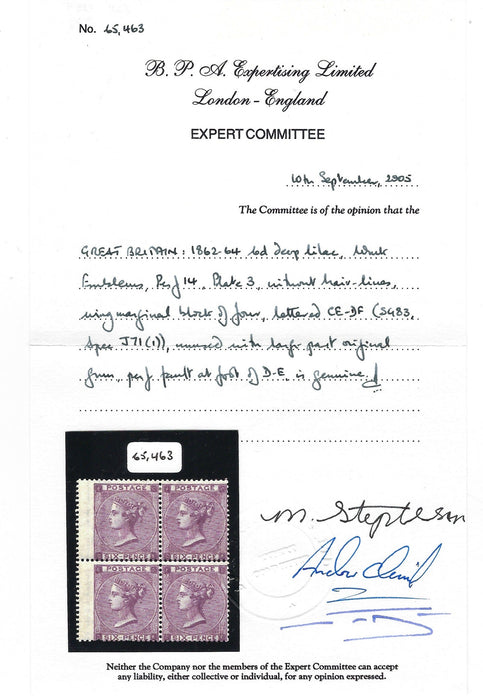 No. 65,463
B. P. A. Expertising Limited
London - England
EXPERT COMMITTEE
10th September, 2005
The Committee is of the opinion that the
GREAT BRITAIN: 1862-64 6d deep lilac, Wmk
Emblems, Perf 14, Plate 3, without hair-lines,
wing marginal block of four, lettered CE-DF (SG83,
Spec J71(1)), unused with large part original
gum, perf. fault at foot of D-E, is genuine.
65,463
POSTAGE POSTAGE
SIX-PENCE SIX-PENCE
POSTAGE POSTAGE
SIX-PENCE SIX-PENCE
M. Stephson
Neither the Company nor the members of the Expert Committee can accept
any liability, either collective or individual, for any opinion expressed.